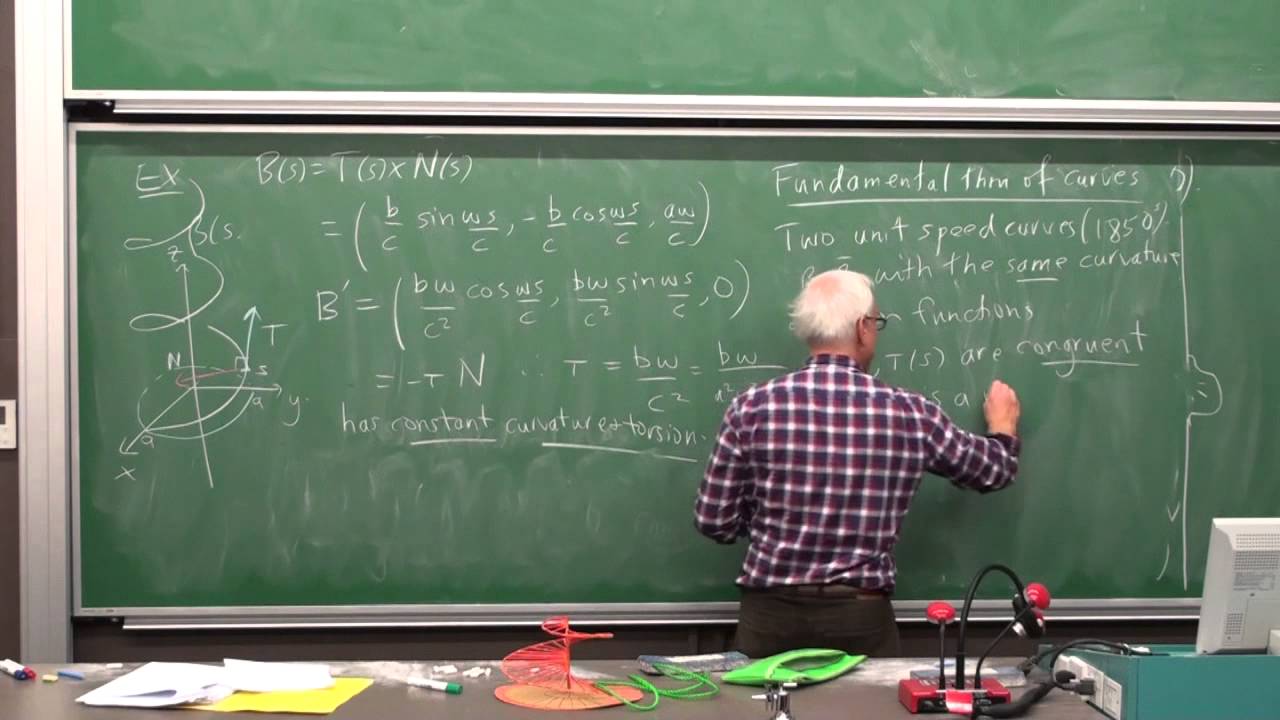 EX
B(s) = T(s) × N(s)
= ( b/c sin ωs/c , - b/c cos ωs/c , aω/c )
B' = ( bω/c² cos ωs/c , bω/c² sin ωs/c , 0 )
= -τ N ∴ τ = bω/c² = bω
has constant curvature + torsion.
β(s.
z
N
T
s
a
y.
a
x
Fundamental thm of curves
Two unit speed curves (1850's)
with the same curvature
functions
, τ(s) are congruent
s a